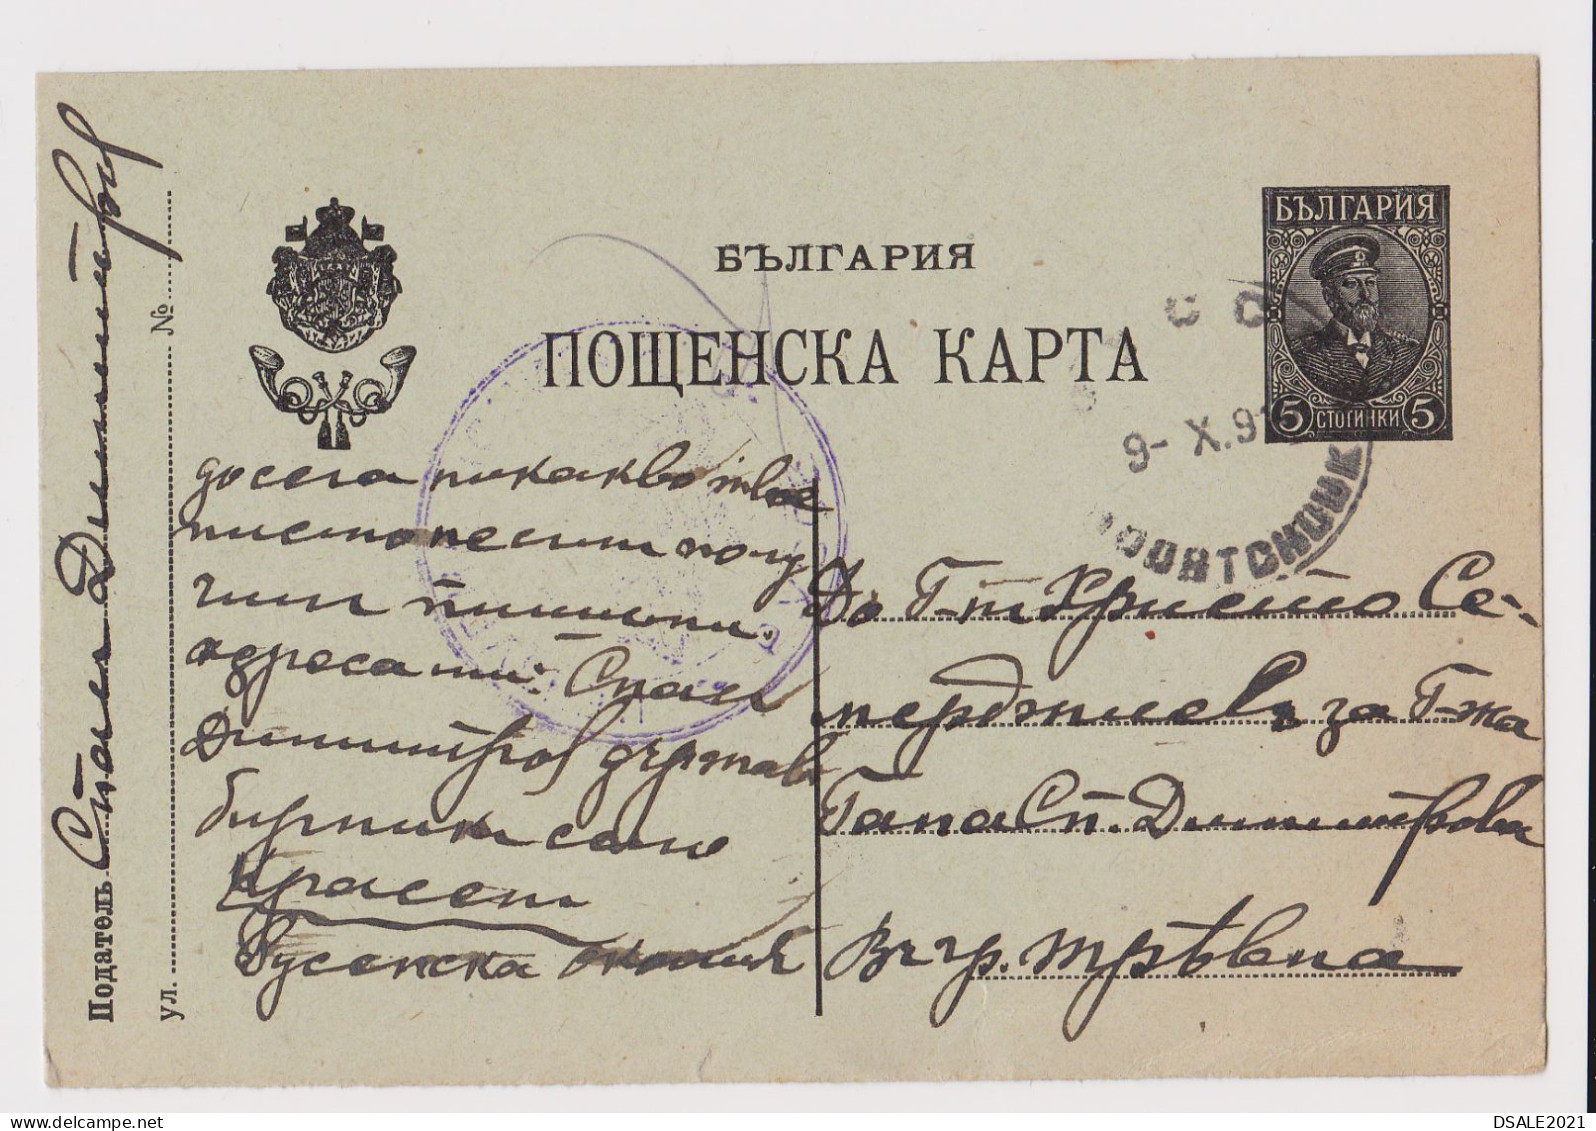 БЪЛГАРИЯ
ПОЩЕНСКА КАРТА
БЪЛГАРИЯ
5 СТОТИНКИ 5
9-X.91
Податель Димитровъ
ул. №
досега никакво твое
писмо не съм полу
чил пиши ми.
адреса ми: Спас
Димитров държав
бирникъ село
Красен
Русенска околия
До Г-нъ Христо Се-
мерджиевъ за Г-жа
Гана Сп. Димитрова
Въ гр. Трѣвна
DSALE2021